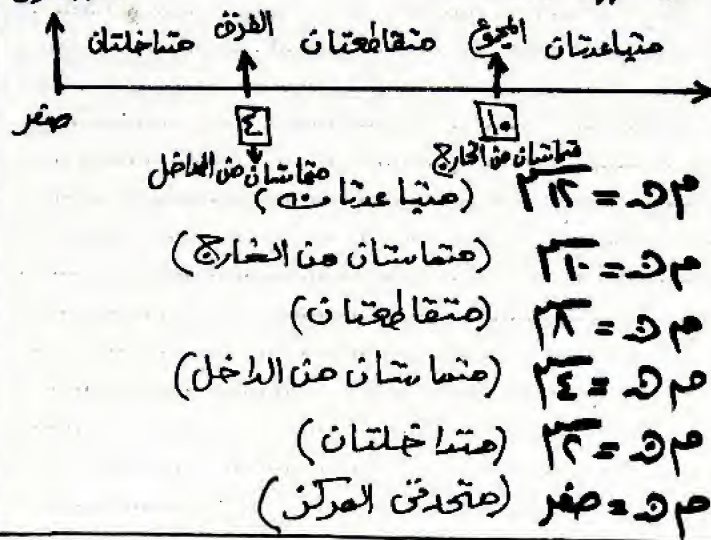 متباعدتان المجموع متقاطعتان الفرق متداخلتان
صفر ٤ ١٠
متماستان من الداخل متماستان من الخارج
م ن = ١٢ سم (متباعدتان)
م ن = ١٠ سم (متماستان من الخارج)
م ن = ٨ سم (متقاطعتان)
م ن = ٤ سم (متماستان من الداخل)
م ن = ٢ سم (متداخلتان)
م ن = صفر (متحدتى المركز)